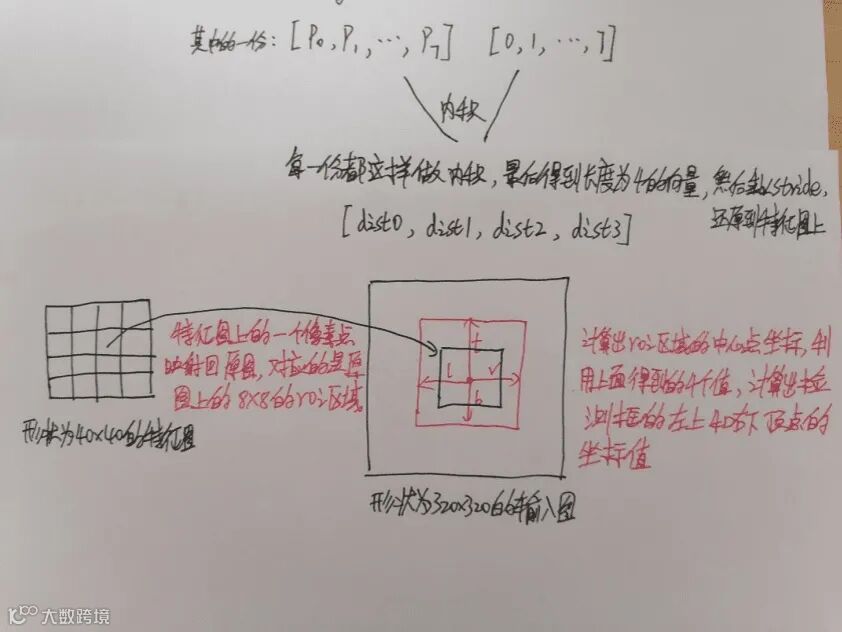 其中的一份: [P0, P1, ..., P7] [0, 1, ..., 7]
内积
每一份都这样做内积, 最后得到长度为4的向量, 然后乘以stride,
还原到特征图上
[dist0, dist1, dist2, dist3]
特征图上的一个像素点
映射回原图, 对应的是原
图上的8x8的roi区域
形状为40x40的特征图
t
l
r
b
形状为320x320的输入图
计算出roi区域的中心点坐标, 利
用上面得到的4个值, 计算出检
测框的左上和右下顶点的
坐标值
大数跨境